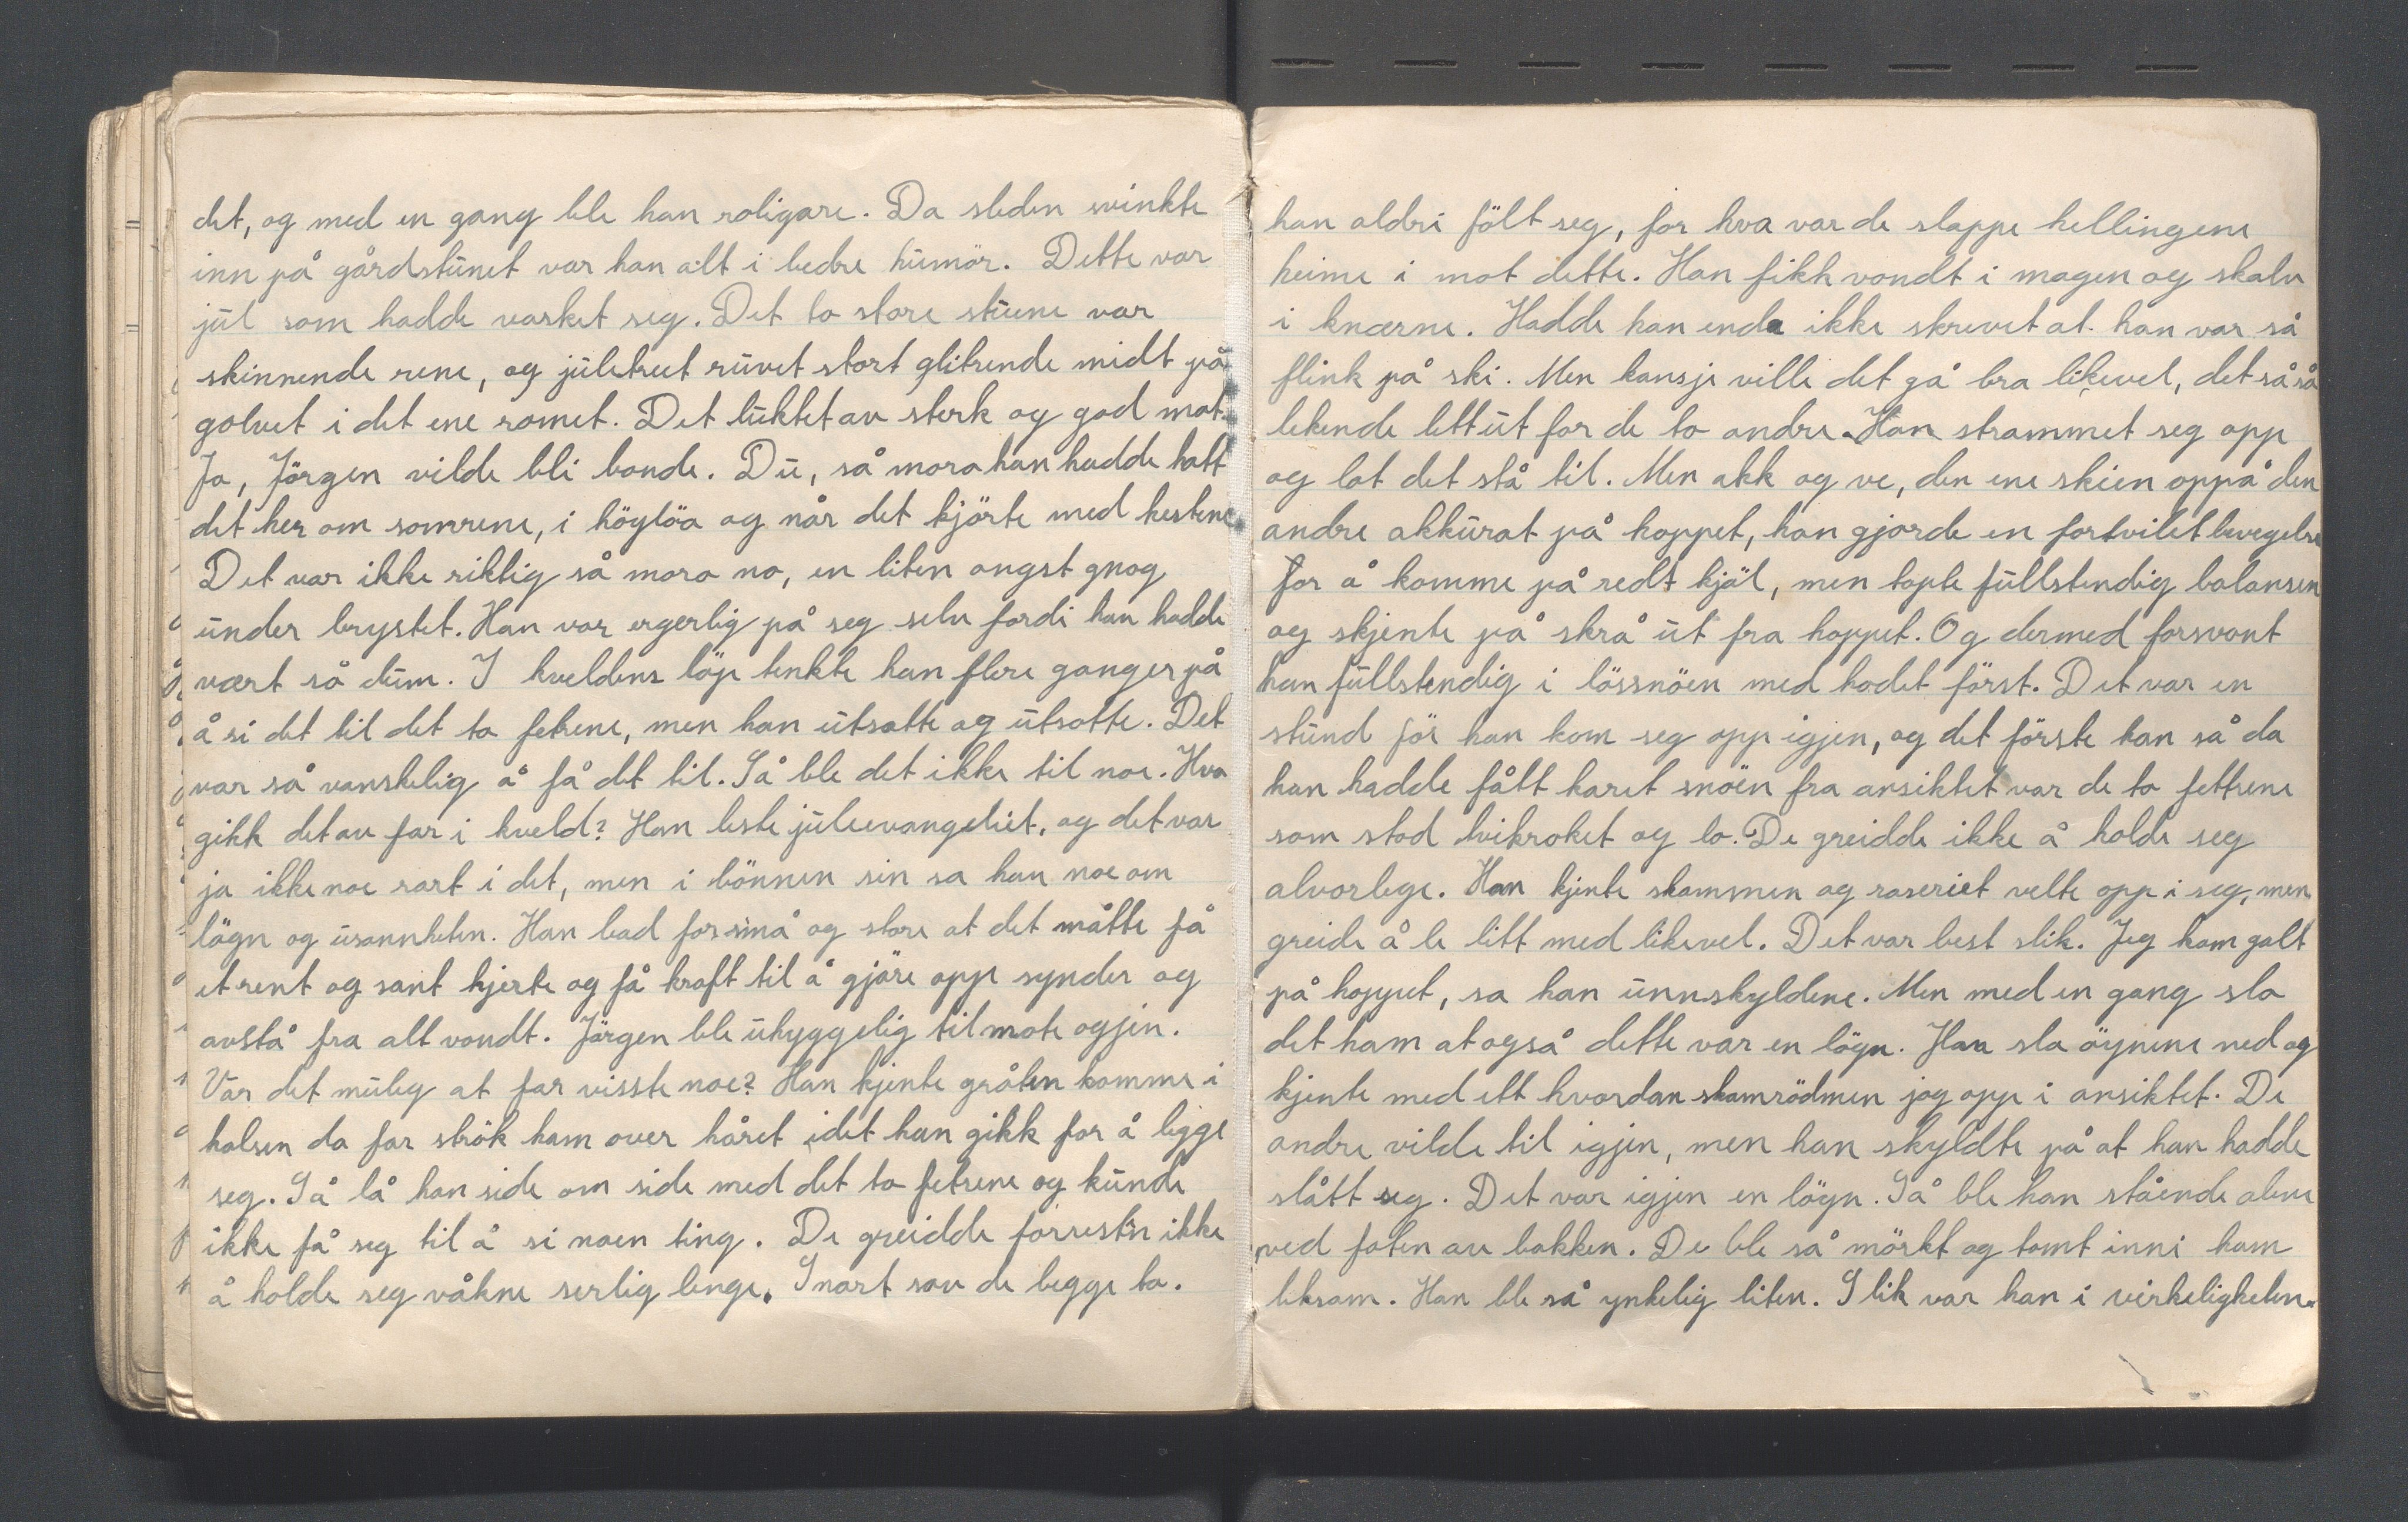 det, og med en gang ble han roligare. Da sleden svinkte
inn på gårdstunet var han alt i bedre humör. Dette var
jul som hadde vasket seg. Det to store stuene var
skinnende rene, og juletreet ruvet stort glitrende midt på
golvet i det ene romet. Det luktet av sterk og god mat.
Ja, Jörgen vilde bli bonde. Du, så mora han hadde hatt
det her om somrene, i höylöa og når det kjörte med hestene
Det var ikke riktig så mora no, en liten angst gnog
under brystet. Han var ergerlig på seg selv fordi han hadde
vært så dum. I kveldens löp tenkte han flere ganger på
å si det til det to fetrene, men han utsatte og utsatte. Det
var så vanskelig å få det til. Så ble det ikke til noe. Hva
gikk det av far i kveld? Han leste juleevangeliet, og det var
ja ikke noe rart i det, men i bönnen sin sa han noe om
lögn og usannheten. Han bad for små og store at det måtte få
et rent og sant hjerte og få kraft til å gjöre opp synder og
avstå fra alt vondt. Jörgen ble uhyggelig til mote ogjen.
Var det mulig at far visste noe? Han kjente gråten komme i
halsen da far strök ham over håret idet han gikk for å legge
seg. Så lå han side om side med det to fetrene og kunde
ikke få seg til å si noen ting. De greidde forresten ikke
å holde seg våkne serlig lenge. Snart sov de begge to.
han aldri fölt seg, for hva var de slappe hellingene
heime i mot dette. Han fikk vondt i magen og skalv
i knærne. Hadde han enda ikke skrevet at han var så
flink på ski. Men kansje ville det gå bra likevel, det så så
lekende lett ut for de to andre. Han strammet seg opp
og lot det stå til. Men akk og ve, den ene skien oppå den
andre akkurat på hoppet, han gjorde en fortvilet bevegelse
for å komme på redt kjöl, men tapte fullstendig balansen
og skjente på skrå ut fra hoppet. Og dermed forsvant
han fullstendig i lössnöen med hodet först. Det var en
stund för han kom seg opp igjen, og det förste han så da
han hadde fått karet snöen fra ansiktet var de to fettrene
som stod tvikroket og lo. De greidde ikke å holde seg
alvorlege. Han kjente skammen og raseriet velte opp i seg, men
greide å le litt med likevel. Det var best slik. Jeg kom galt
på hoppet, sa han unnskyldene. Men med en gang slo
det ham at også dette var en lögn. Han slo öynene ned og
kjente med ett hvordan skamrödmen jog opp i ansiktet. De
andre vilde til igjen, men han skyldte på at han hadde
slått seg. Det var igjen en lögn. Så ble han stående alene
ved foten av bakken. De ble så mörkt og tomt inni ham
liksom. Han ble så ynkelig liten. Slik var han i virkeligheten.